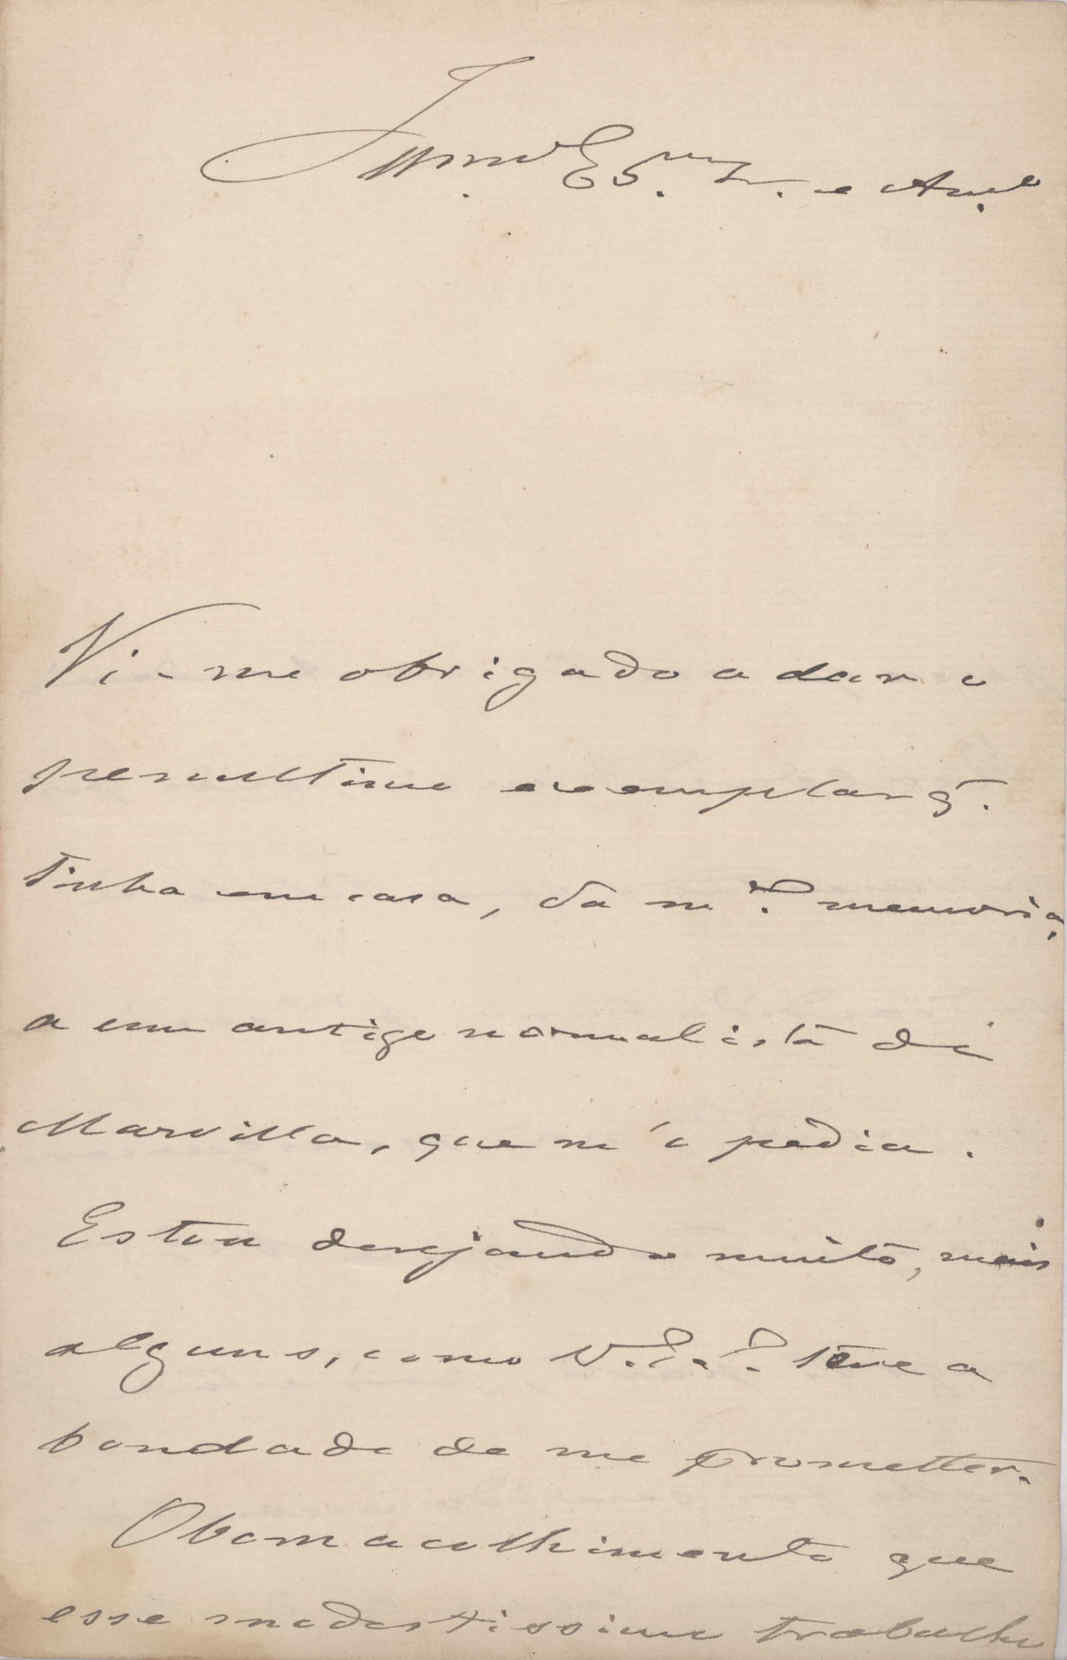 Illmo Exmo Sr. e Amo
Vi-me obrigado a dar o
penultimo exemplar q.
tinha em casa, da ma memoria,
a um antigo normalista de
Marvilla, que m'o pedia.
Estou desejando muito, mais
alguns, como V. Exa. teve a
bondade de me prometter.
O bom acolhimento que
esse modestissimo trabalho